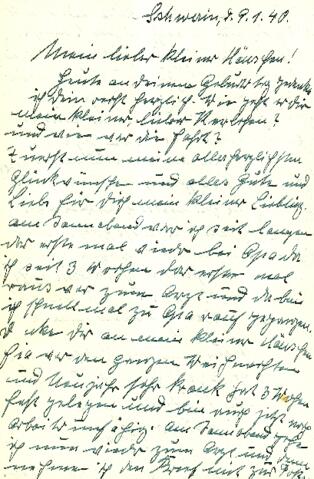 Schwerin, d. 9.1.40.
Mein lieber kleiner Hänschen!
Heute an deinem Geburtstag gedenke
ich Dein recht herzlich. Wie geht es dir
mein kleiner lieber
und wie war die Fahrt?
Zuerst nun meine allerherzlichsten
Glückwünsche und alles Gute und
Liebe für Dich mein kleiner Liebling.
Am Sonnabend war ich seit langem
das erste mal wieder bei da
ich seit 3 Wochen das erste mal
raus war zum Arzt und da bin
ich schnell mal zu rauf gegangen.
dir an mein kleiner Hänschen
war den ganzen Weihnachten
und Neujahr sehr krank hat 3 Wochen
fest gelegen und bin auch jetzt noch
Arbeitsunfähig. Am Sonnabend
ich nun wieder zum Arzt und dann
nehme ich den Brief mit zur Post.